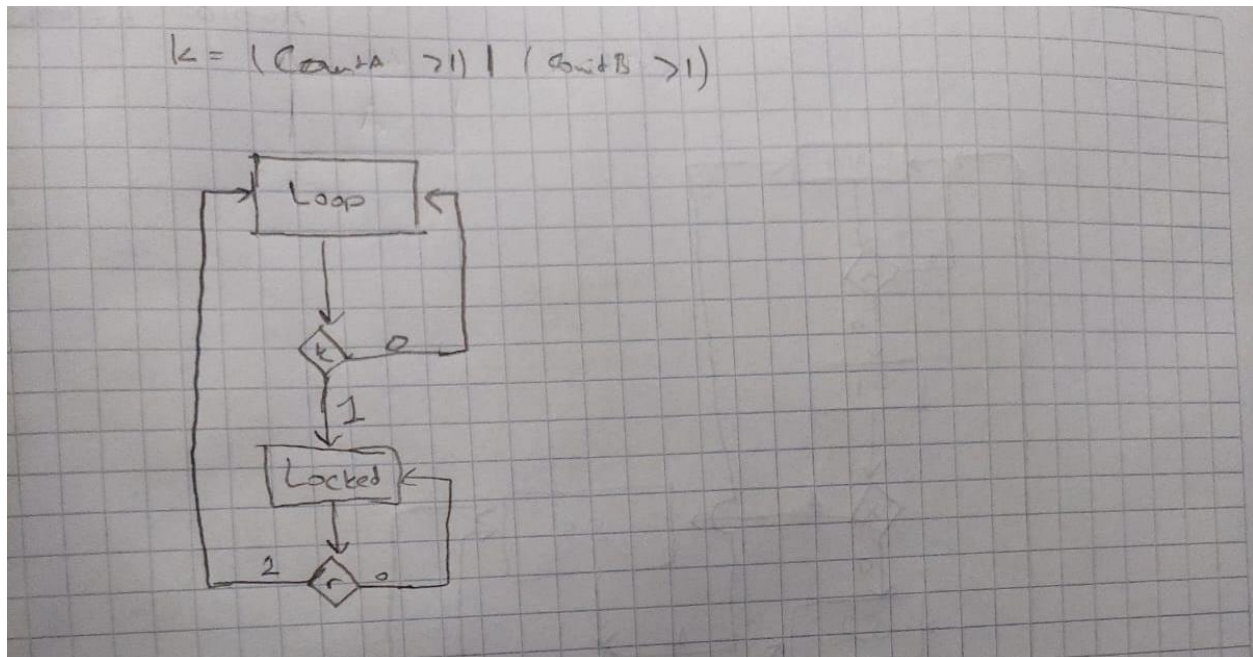 k = (CountA >1) | (CountB >1)
Loop
k
0
1
Locked
2
r
0